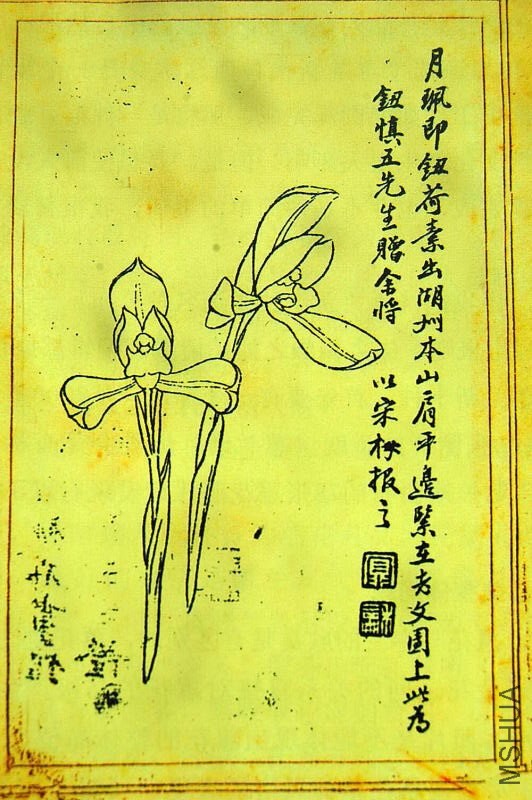 月珮即鈕荷素出湖州本山肩平邊緊在老文團上此為
鈕慎五先生贈余將 以宋梅報之
MSHUA